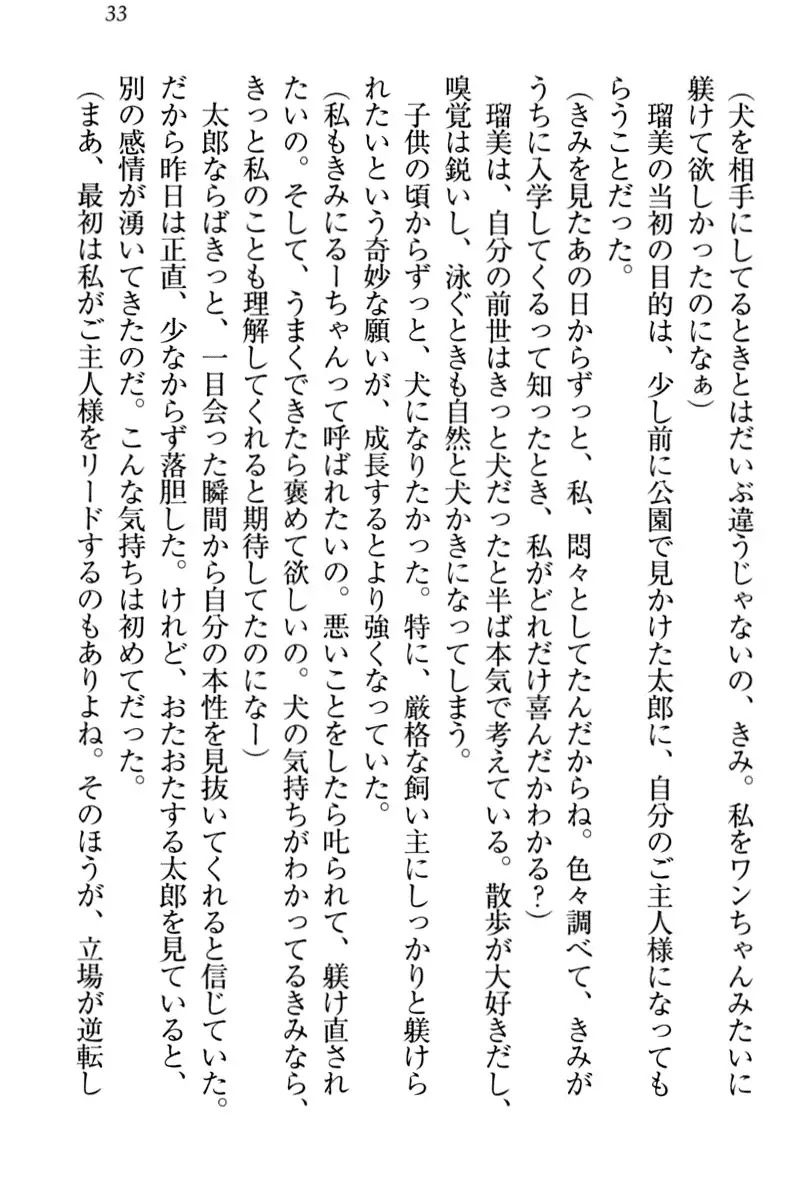 33
(犬を相手にしてるときとはだいぶ違うじゃないの、きみ。私をワンちゃんみたいに
躾けて欲しかったのになぁ)
瑠美の当初の目的は、少し前に公園で見かけた太郎に、自分のご主人様になっても
らうことだった。
(きみを見たあの日からずっと、私、悶々としてたんだからね。色々調べて、きみが
うちに入学してくるって知ったとき、私がどれだけ喜んだかわかる?)
瑠美は、自分の前世はきっと犬だったと半ば本気で考えている。散歩が大好きだし、
嗅覚は鋭いし、泳ぐときも自然と犬かきになってしまう。
子供の頃からずっと、犬になりたかった。特に、厳格な飼い主にしっかりと躾けら
れたいという奇妙な願いが、成長するとより強くなっていた。
(私もきみにるーちゃんって呼ばれたいの。悪いことをしたら叱られて、躾け直され
たいの。そして、うまくできたら褒めて欲しいの。犬の気持ちがわかってるきみなら、
きっと私のことも理解してくれると期待してたのになー)
太郎ならばきっと、一目会った瞬間から自分の本性を見抜いてくれると信じていた。
だから昨日は正直、少なからず落胆した。けれど、おたおたする太郎を見ていると、
別の感情が湧いてきたのだ。こんな気持ちは初めてだった。
(まあ、最初は私がご主人様をリードするのもありよね。そのほうが、立場が逆転し